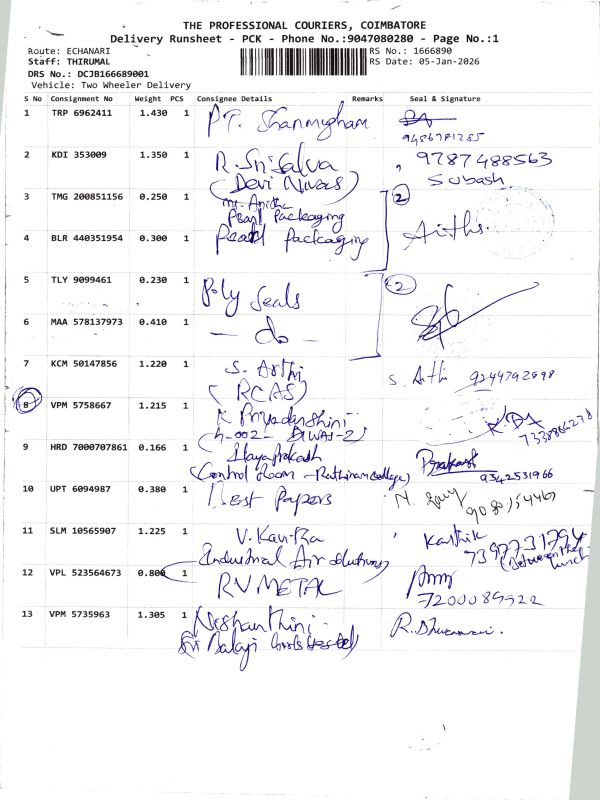 THE PROFESSIONAL COURIERS, COIMBATORE
Delivery Runsheet - PCK - Phone No.:9047080280 - Page No.:1
Route: ECHANARI RS No.: 1666890
Staff: THIRUMAL RS Date: 05-Jan-2026
DRS No.: DCJB166689001
Vehicle: Two Wheeler Delivery
S No Consignment No Weight PCS Consignee Details Remarks Seal & Signature
1 TRP 6962411 1.430 1 P.T. Shanmugham
9486781285
2 KDI 353009 1.350 1 R. Sri Selva 9787488563
(Devi Nivas) Subash
3 TMG 200851156 0.250 1 Mr. Anitha 2
Pearl Packaging
4 BLR 440351954 0.300 1 Pearl Packaging
5 TLY 9099461 0.230 1 Poly Seals 2
6 MAA 578137973 0.410 1 - do -
7 KCM 50147856 1.220 1 S. Arthi S. Arthi 9244792898
(RCAS)
8 VPM 5758667 1.215 1 K Priyadarshini
9 HRD 7000707861 0.166 1 Ilayaprakash Prakash
(Control Room - Rathinam college) 9342531966
10 UPT 6094987 0.380 1 Best Papers
11 SLM 10565907 1.225 1 Karthik
7397731794
Industrial Air solutions)
12 VPL 523564673 0.800 1 RV METAL
7200089522
13 VPM 5735963 1.305 1 Neshanthini
Sri Balaji